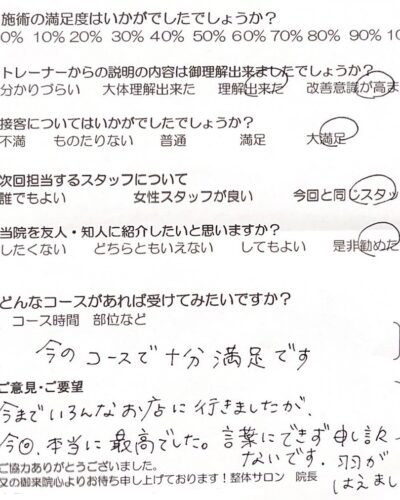 施術の満足度はいかがでしたでしょうか?
0% 10% 20% 30% 40% 50% 60% 70% 80% 90% 10
トレーナーからの説明の内容は御理解出来ましたでしょうか?
分かりづらい 大体理解出来た 理解出来た 改善意識が高ま
接客についてはいかがでしたでしょうか?
不満 ものたりない 普通 満足 大満足
次回担当するスタッフについて
誰でもよい 女性スタッフが良い 今回と同じスタッ
当院を友人・知人に紹介したいと思いますか?
したくない どちらともいえない してもよい 是非勧めた
どんなコースがあれば受けてみたいですか?
コース時間 部位など
今のコースで十分満足です
ご意見・ご要望
今までいろんなお店に行きましたが、
今回、本当に最高でした。言葉にできず申し訳
ないです。羽が
はえまし
ご協力ありがとうございました。
又の御来院心よりお待ち申し上げております!整体サロン 院長